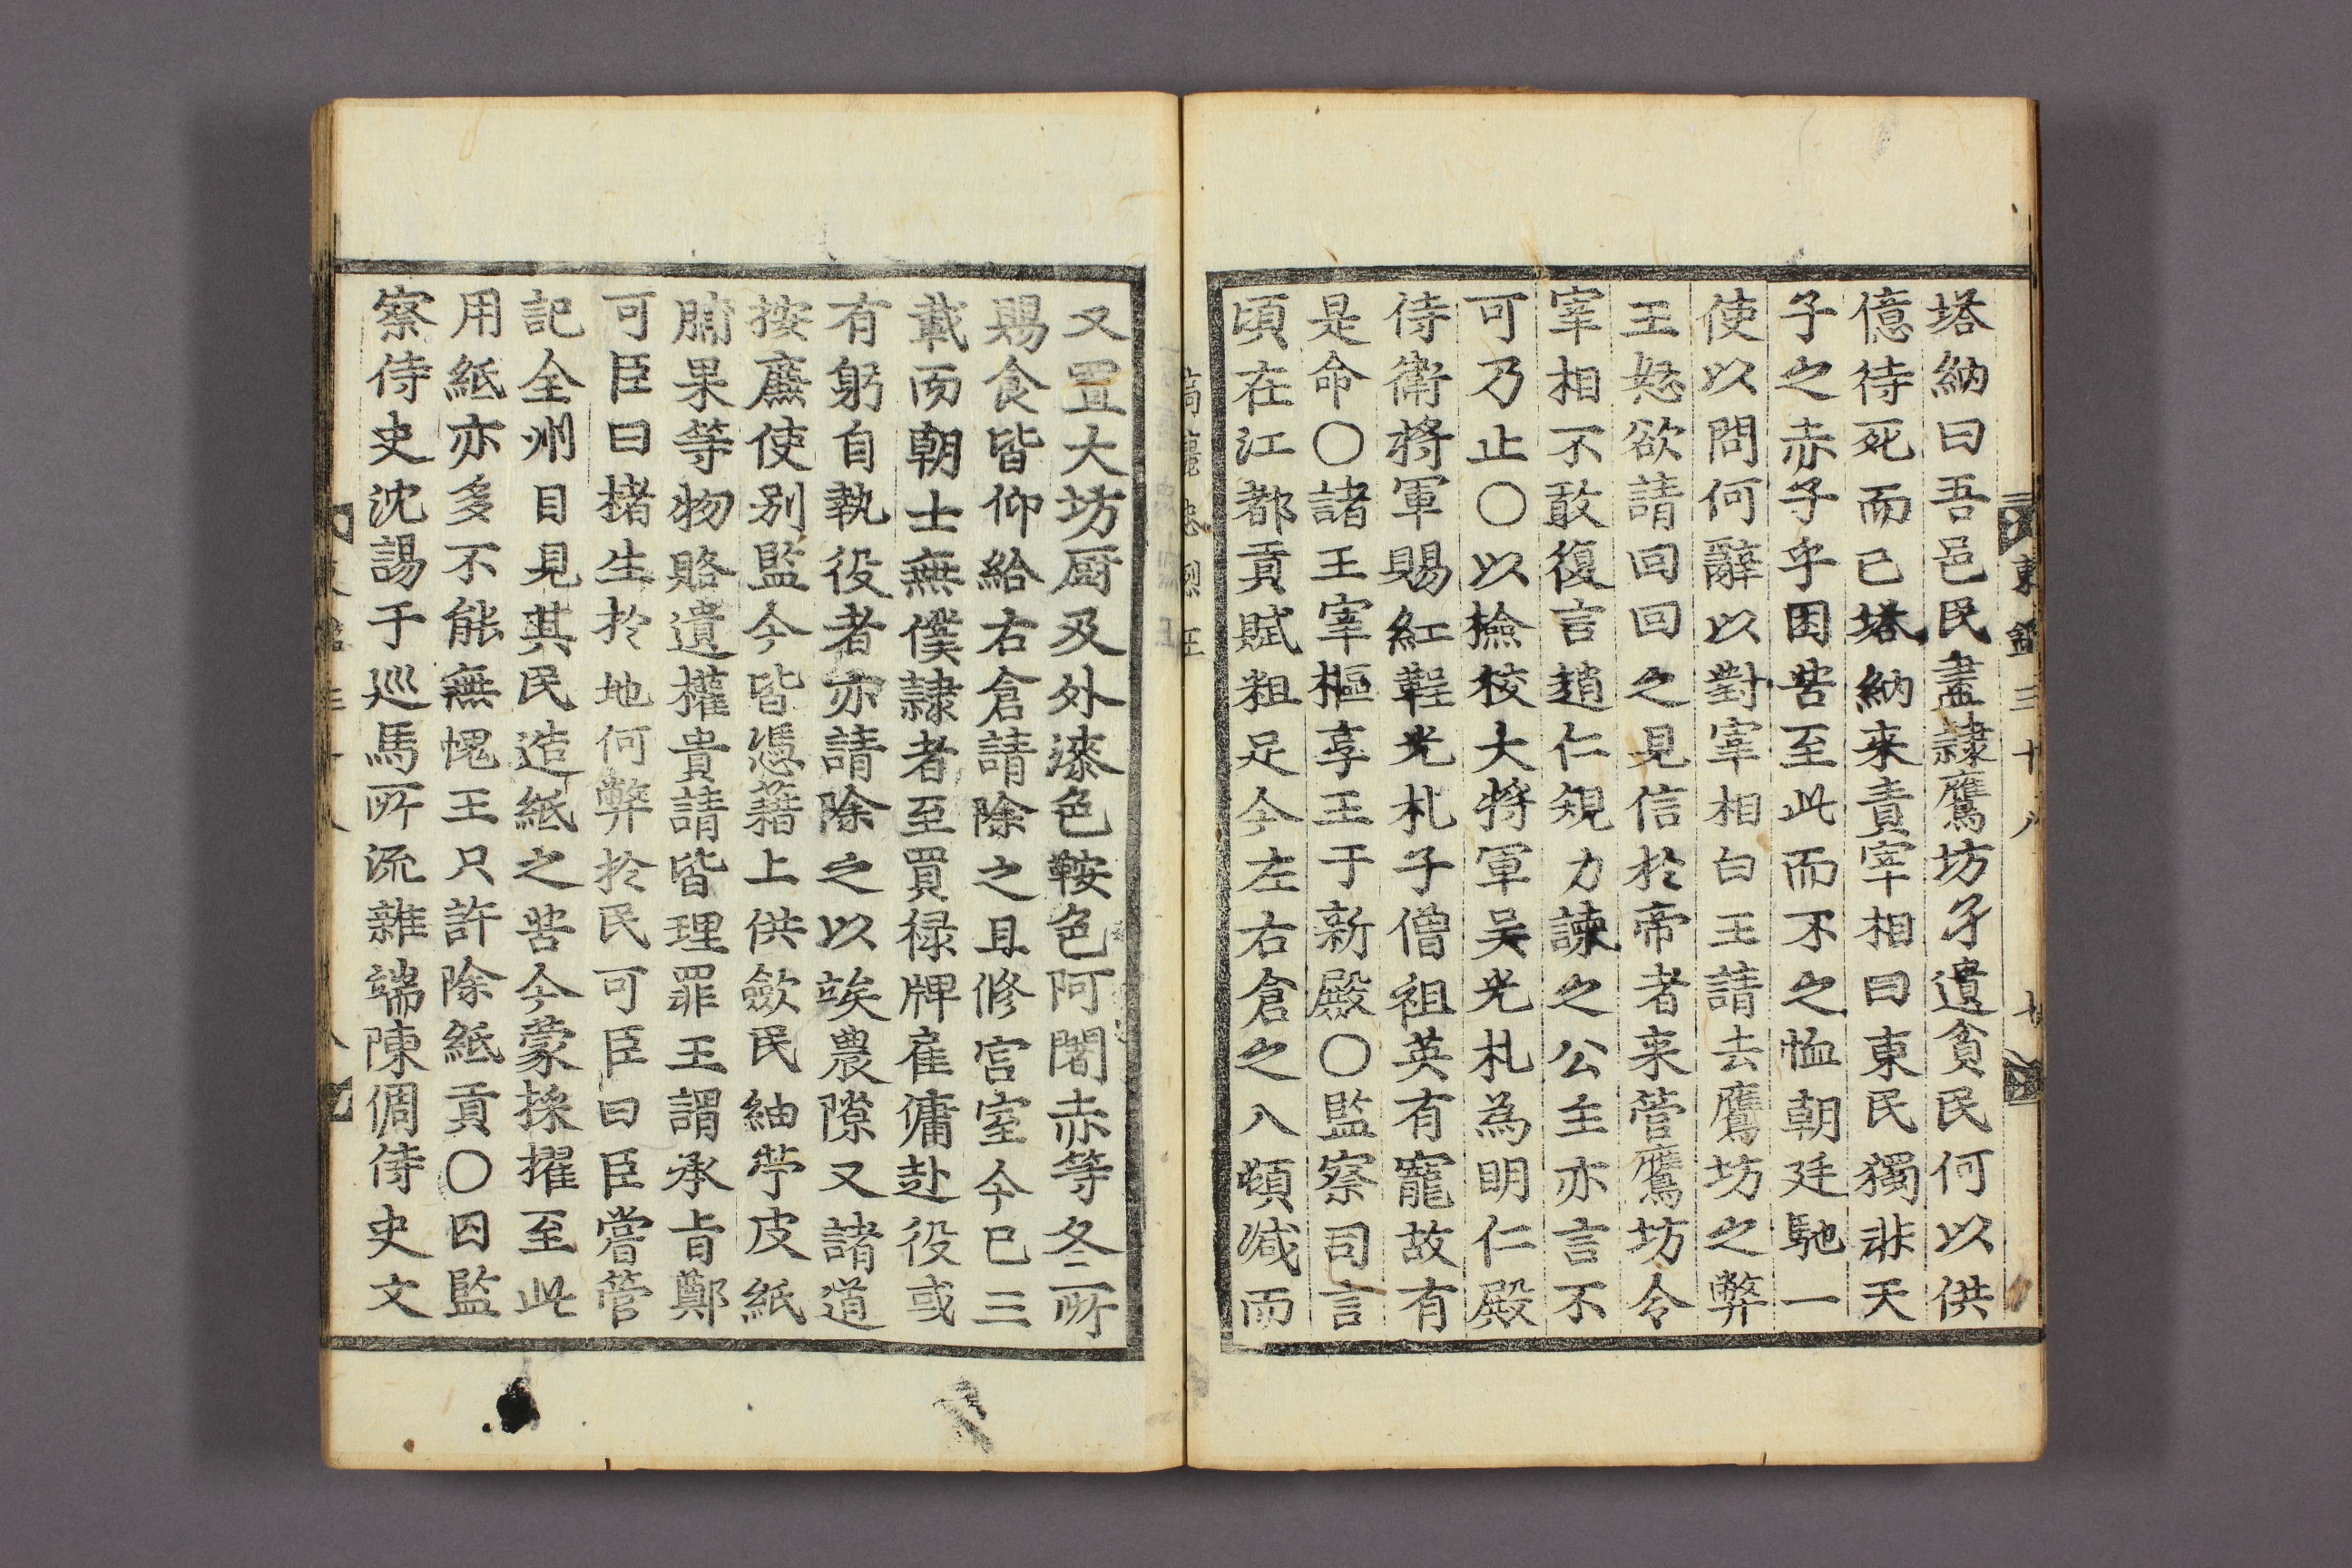 東鑑三十八
塔納曰吾邑民盡隷鷹坊孑遺貧民何以供
億待死而已塔納来責宰相曰東民獨非天
子之赤子乎困苦至此而不之恤朝廷馳一
使以問何辭以對宰相白王請去鷹坊之弊
王怒欲請回回之見信於帝者来管鷹坊令
宰相不敢復言趙仁規力諫之公主亦言不
可乃止○以撿校大将軍吴光札為明仁殿
侍衛将軍賜紅鞓光札子僧祖英有寵故有
是命○諸王宰樞享王于新殿○監察司言
頃在江都貢賦粗足今左右倉之入頓减而
高麗忠烈王
又置大坊厨及外漆色鞍色阿闍赤等冬二所
賜食皆仰給右倉請除之且修宫室今已三
載而朝士無僕隷者至買禄牌雇傭赴役或
有躬自執役者亦請除之以竢農隙又諸道
按廉使别監今皆憑藉上供歛民紬苧皮紙
脯果等物賂遺權貴請皆理罪王謂承旨鄭
可臣曰楮生於地何弊於民可臣曰臣嘗管
記全州目見其民造紙之苦今蒙採擢至此
用紙亦多不能無愧王只許除紙貢○囚監
察侍史沈諹于巡馬所流雜端陳倜侍史文